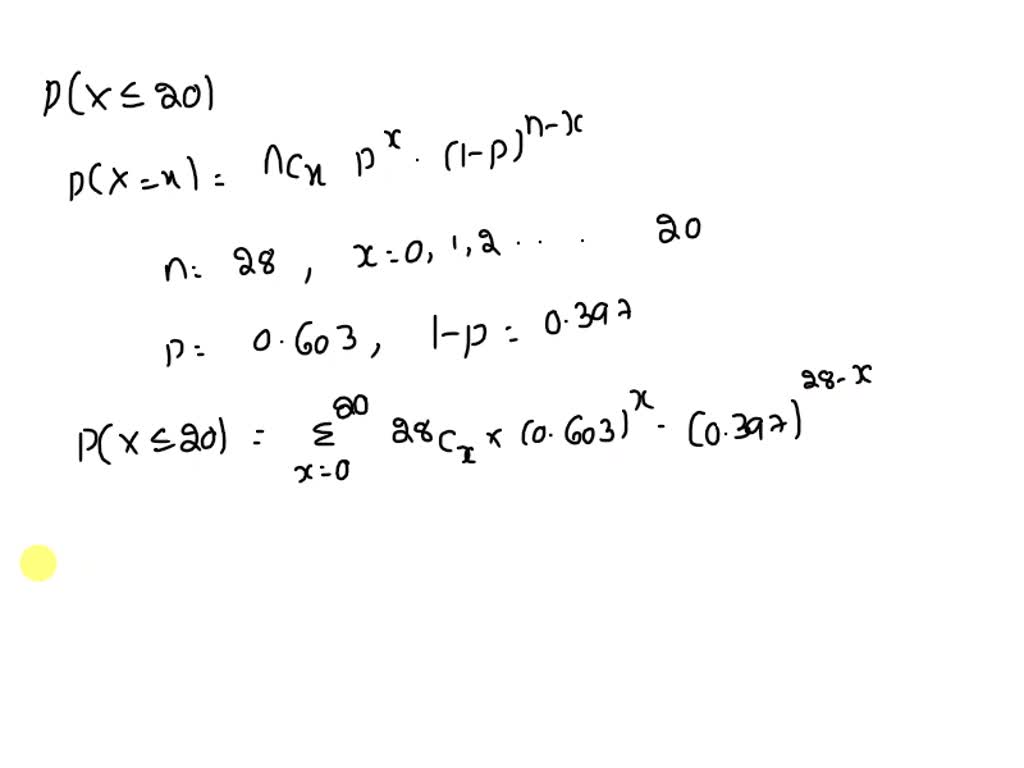 P(X ≤ 20)
P(X = x) = nCx p^x . (1-p)^n-x
n = 28 , x = 0, 1, 2 . . . . 20
p = 0.603 , 1-p = 0.397
P(X ≤ 20) = Σ^20_x=0 28Cx × (0.603)^x - (0.397)^28-x